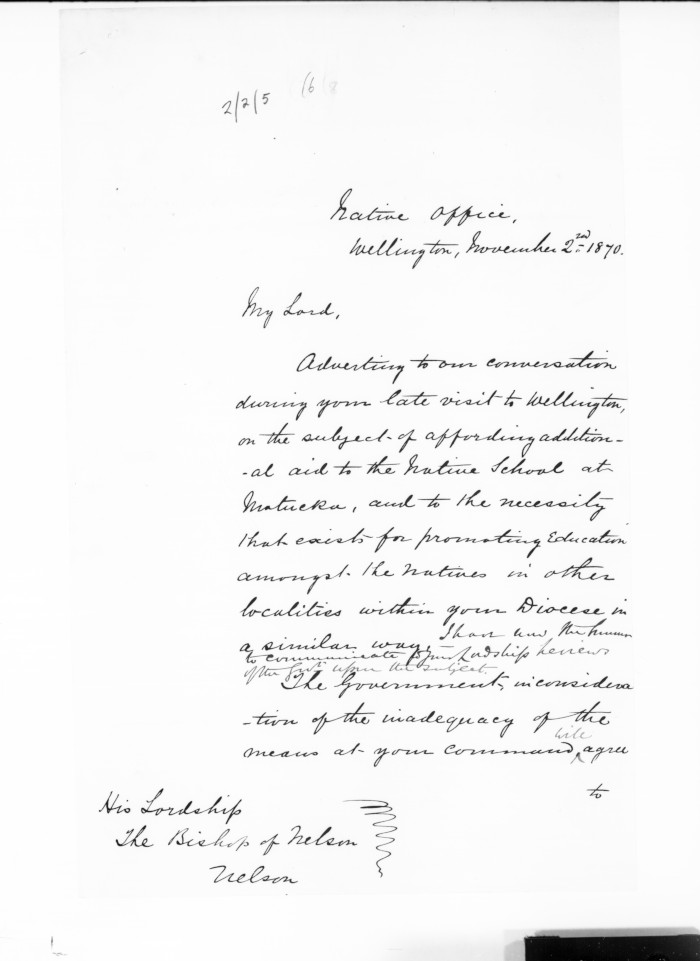 2/2/5 (6/8
Native Office,
Wellington, November 2nd 1870.
My Lord,
Adverting to our conversation
during your late visit to Wellington,
on the subject of affording addition-
-al aid to the Native School at
Motueka, and to the necessity
that exists for promoting Education
amongst the Natives in other
localities within your Diocese in
a similar way, I have now the honour
to communicate to your Lordship the views
of the Govt upon the subject.
The Government, in considera
-tion of the inadequacy of the
means at your command, will agree
to
His Lordship
The Bishop of Nelson
Nelson